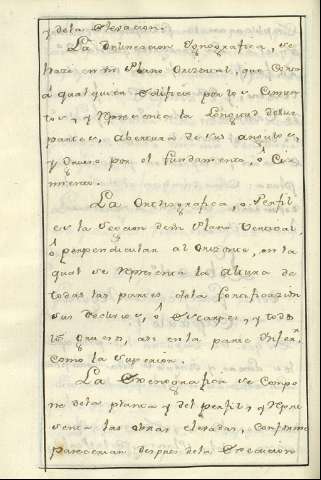 y dela Elevacion.
La Delineacion Ignografica, se
hace en un Plano Orizontal, que Corta
â qualquier Edificio por los Cimien
tos, y Representa la Longitud delas
partes, abertura de sus angulos,
y Grueso por el fundamento, ô Ci
miento.
La Orthografica, ô Perfil
es la Seccion de un Plano Vertical,
ô perpendicular al Orizonte, en la
qual se Representa la altura de
todas las partes dela fortificazion
sus Declivios, ô Escarpes, y todo
el grueso, asi en la parte Inferr.
como la Superior.
La Scenografica se Compo
ne dela planta y del perfil, y Repre
senta las obras elevadas, Conforme
parecerian despues dela Execucion